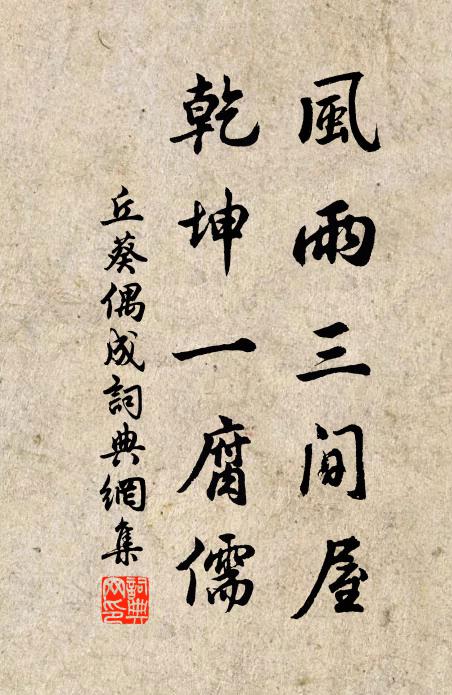 風雨三間屋
乾坤一腐儒
丘葵偶成詞典網集
詞典網印